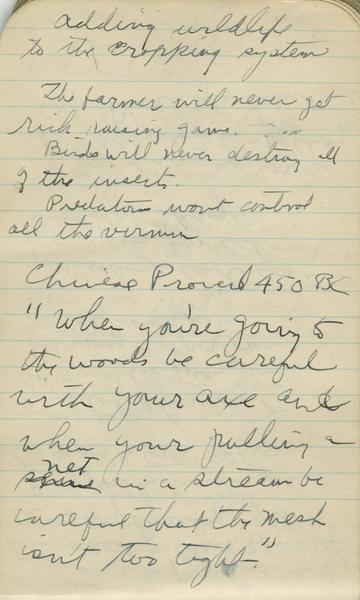 adding wildlife
to the cropping system
The farmer will never get
rich raising game.
Birds will never destroy all
of the insects.
Predators wont control
all the vermin
Chinese Proverb 450 BC
"When you're going to
the woods be careful
with your axe and
when your pulling a
net
seine in a stream be
careful that the mesh
isn't too tight."